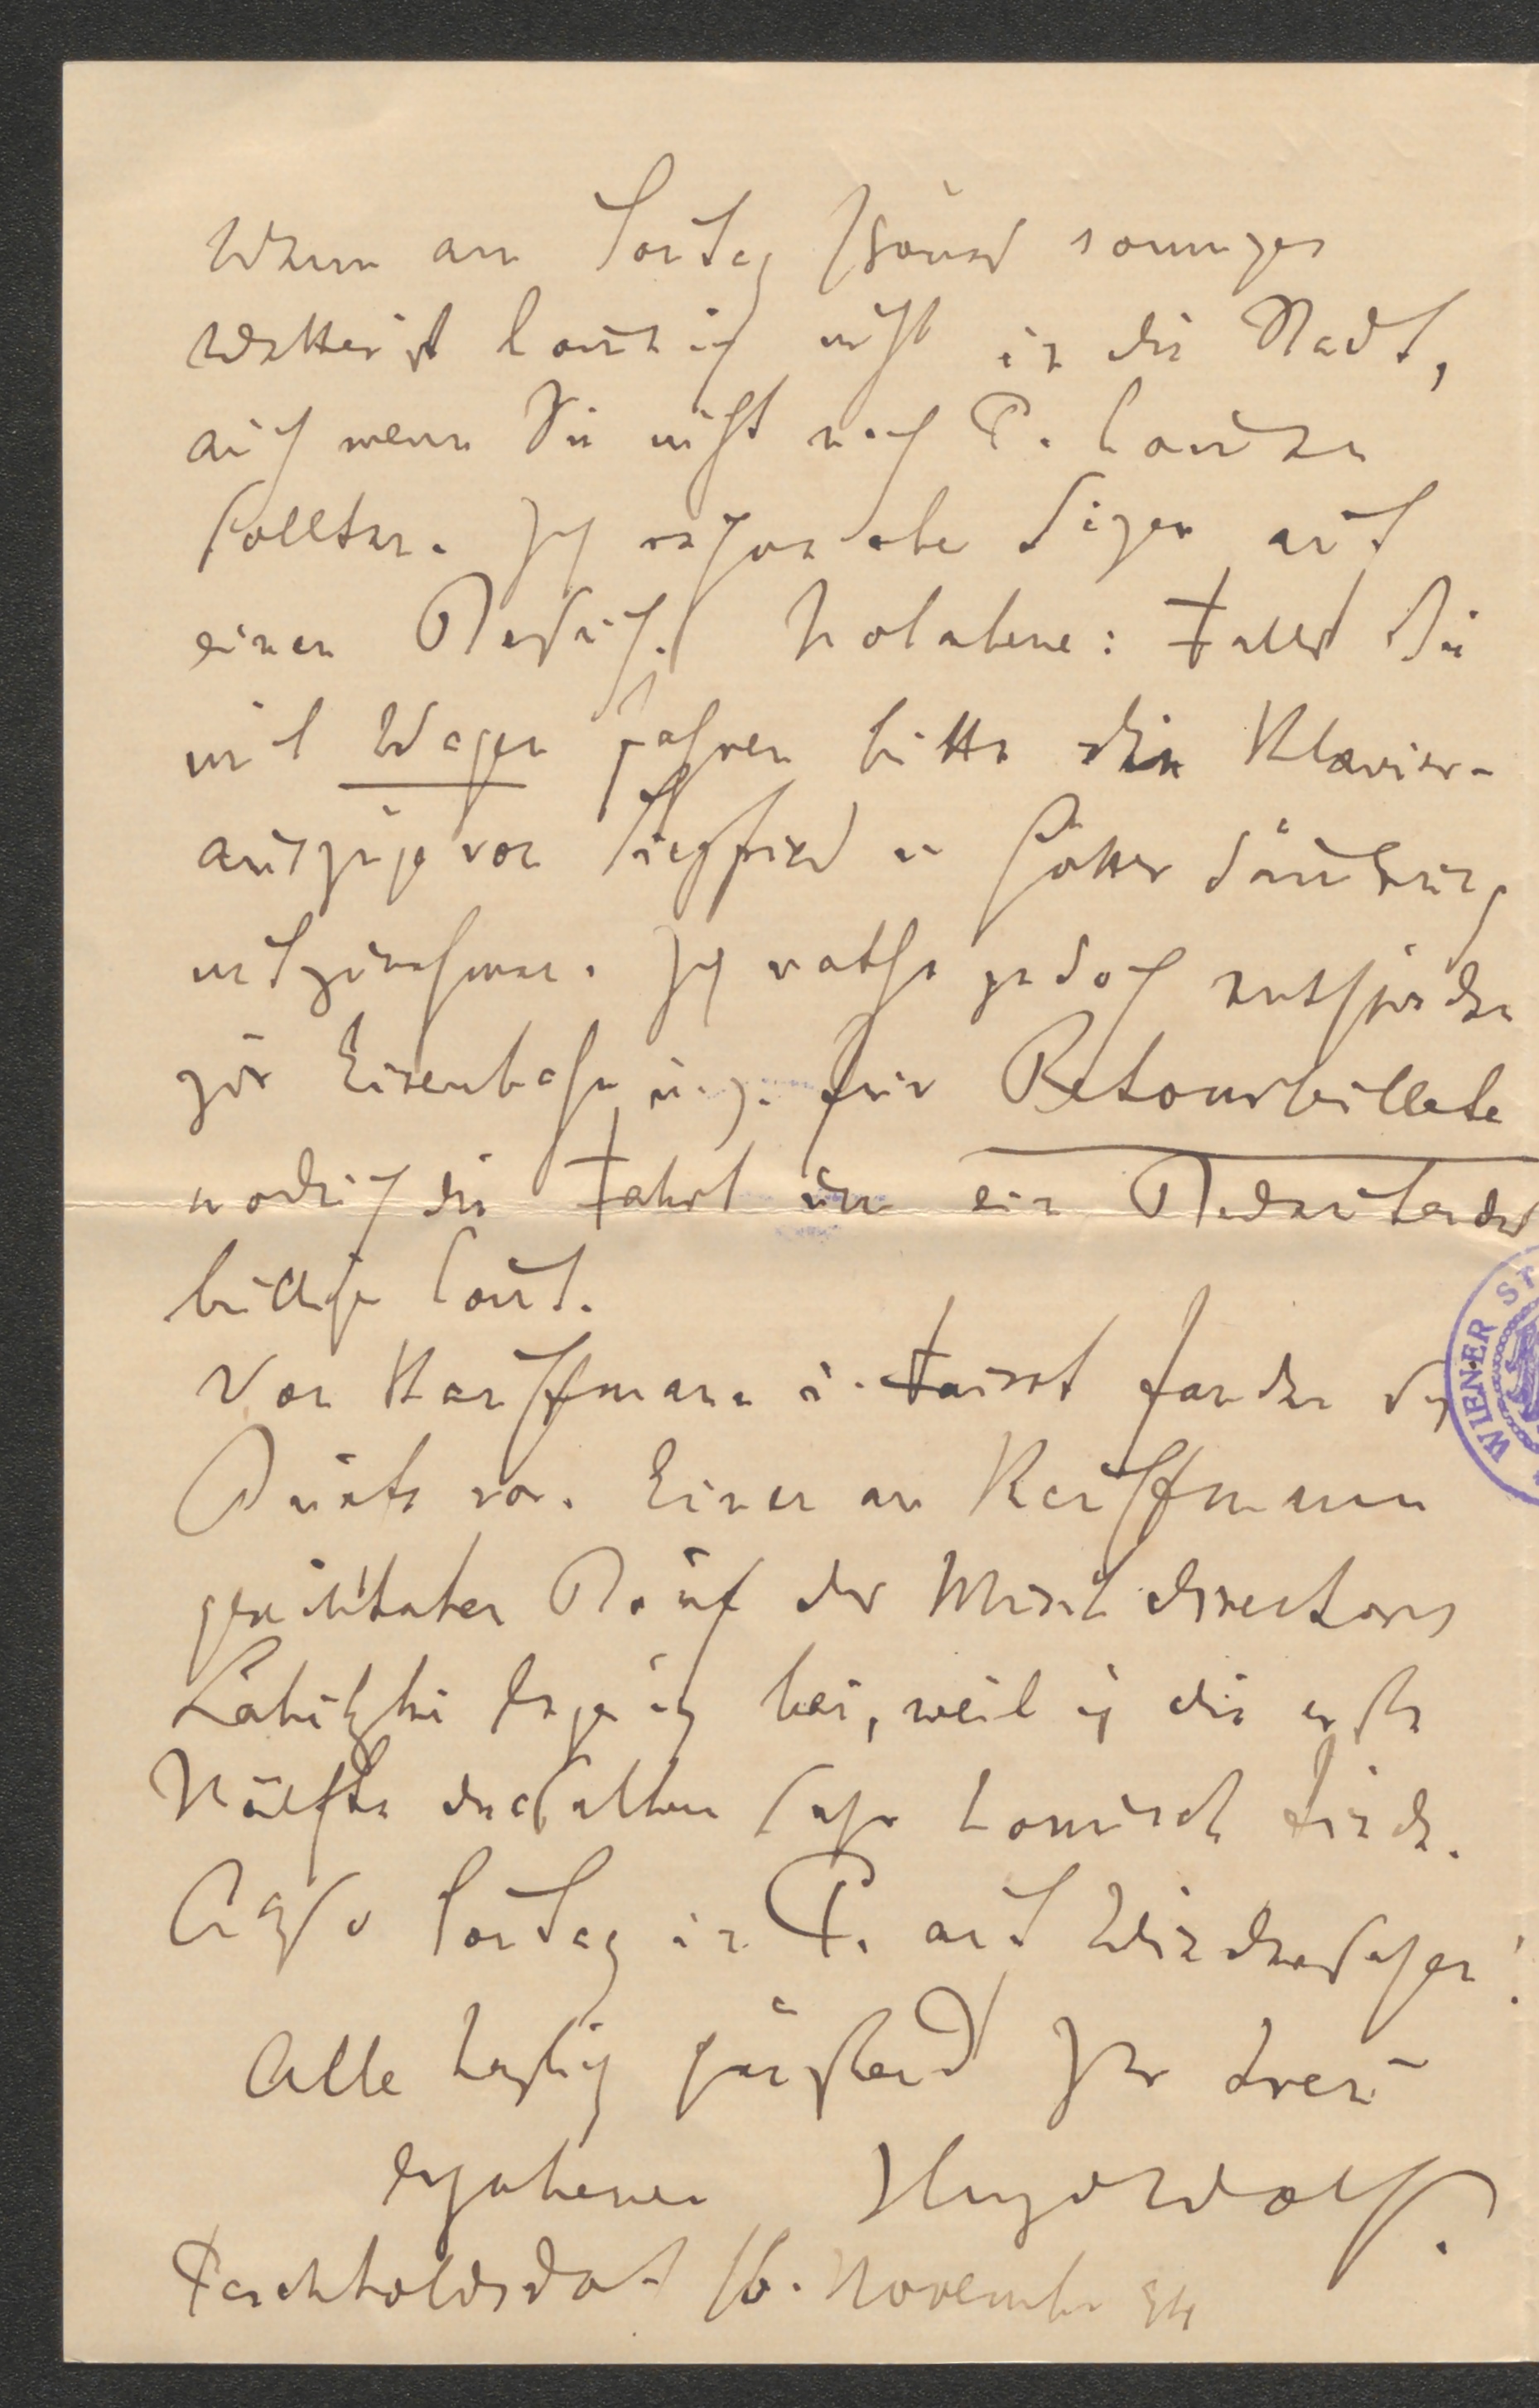 Wenn am Sontag schönes sonniges
Wetter ist komm ich nicht in die Stadt,
auch wenn Sie nicht nach P. kommen
sollten. Ich rechne aber sicher auf
einen Besuch. Notabene: Falls Sie
mit Wagen fahren bitte die Klavier-
auszüge von Siegfried u Götterdämmerung
mitzunehmen. Ich rathe jedoch entschieden
zur Eisenbahn u. z. für Retourbillete
wodurch die Fahrt um ein Bedeutendes
billiger komt.
Von Kauffmann u. Faisst fanden sich
Briefe vor. Einen an Kauffmann
gerichteten Brief des Musikdirectors
lege ich bei, weil ich die erste
Hälfte desselben sehr komisch finde.
Also Sontag in P. auf Wiedersehen!
Alle herzlich grüßend Ihr treu
ergebener Hugo Wolf.
Perchtoldsdorf 16. November 94
WIENER ST